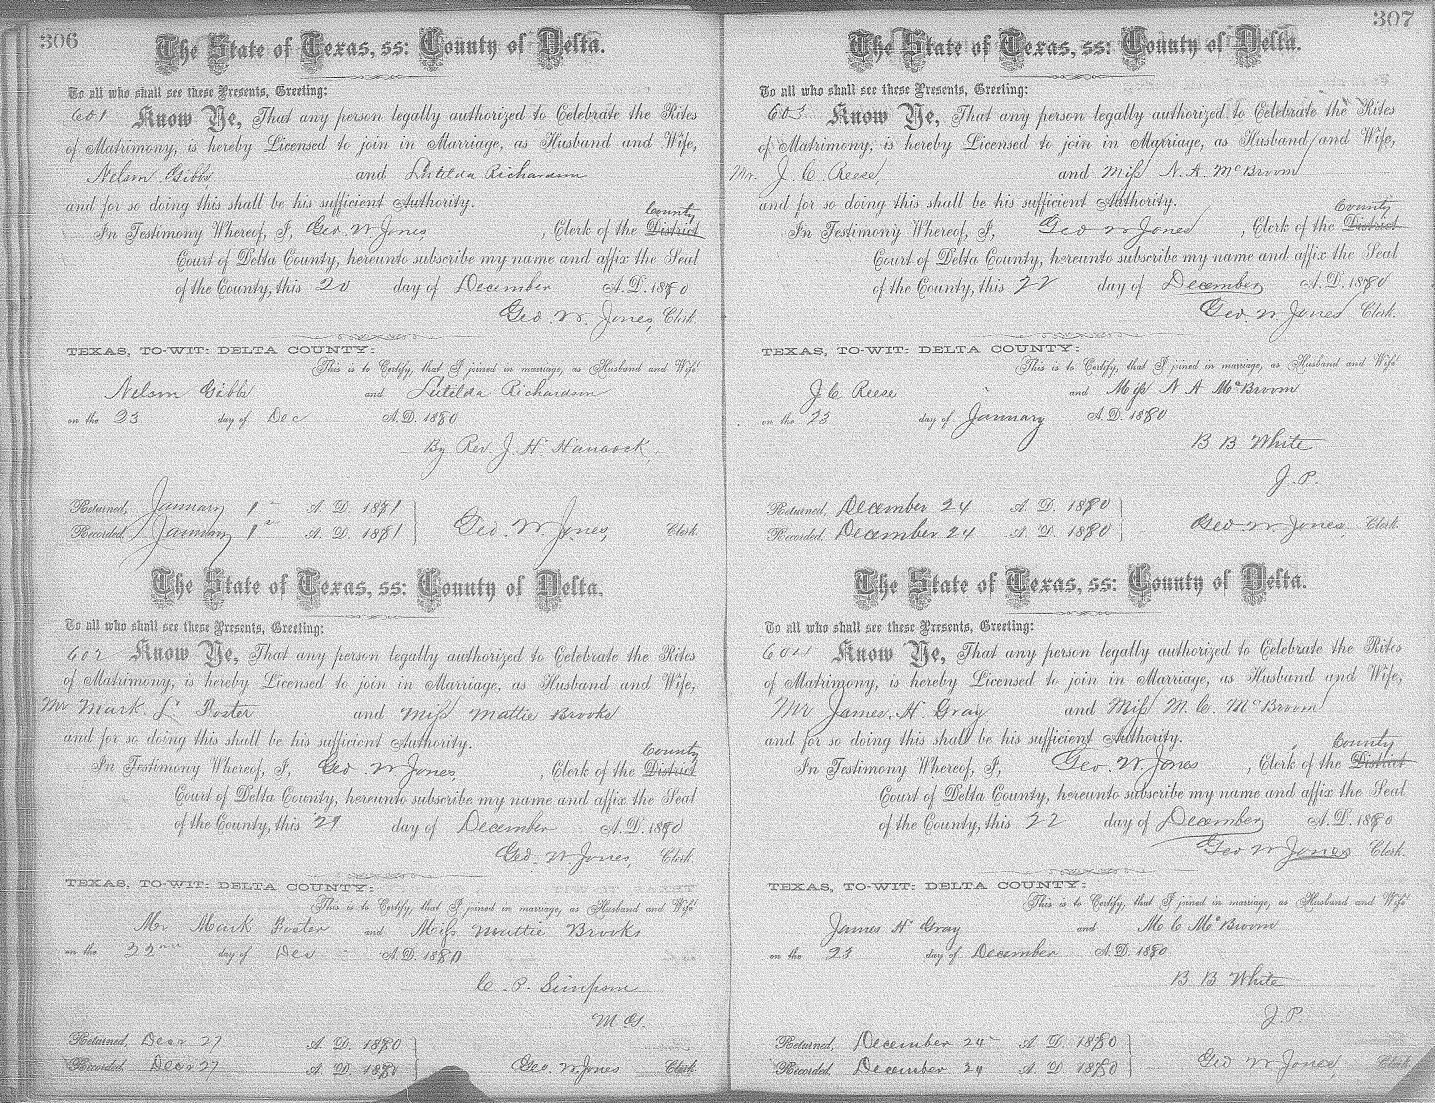 306
The State of Texas, ss: County of Delta.
To all who shall see these Presents, Greeting:
601 Know Ye, That any person legally authorized to Celebrate the Rites
of Matrimony, is hereby Licensed to join in Marriage, as Husband and Wife,
Nelson Gibbs, and Lutilda Richardson
and for so doing this shall be his sufficient Authority.
County
In Testimony Whereof, I, Geo. W Jones, , Clerk of the District
Court of Delta County, hereunto subscribe my name and affix the Seal
of the County, this 20 day of December A.D. 1880
Geo. W. Jones, Clerk.
TEXAS, TO-WIT: DELTA COUNTY:
This is to Certify, that I joined in marriage, as Husband and Wife
Nelson Gibbs and Lutilda Richardson
on the 23 day of Dec A.D. 1880
By Rev. J. H Hancock,
Returned, January 1st A. D. 1881
Recorded, January 1st A. D. 1881 Geo. W. Jones, Clerk
The State of Texas, ss: County of Delta.
To all who shall see these Presents, Greeting:
602 Know Ye, That any person legally authorized to Celebrate the Rites
of Matrimony, is hereby Licensed to join in Marriage, as Husband and Wife,
Mr Mark L. Foster and Miss Mattie Brooks
and for so doing this shall be his sufficient Authority.
County
In Testimony Whereof, I, Geo. W Jones, , Clerk of the District
Court of Delta County, hereunto subscribe my name and affix the Seal
of the County, this 21 day of December A.D. 1880
Geo. W Jones, Clerk.
TEXAS, TO-WIT: DELTA COUNTY:
This is to Certify, that I joined in marriage, as Husband and Wife
Mr Mark Foster and Miss Mattie Brooks
on the 22nd day of Dec A.D. 1880
C. P. Simpson
M G.
Returned, Decr 27 A. D. 1880
Recorded, Decr 27 A. D. 1880 Geo. W. Jones Clerk
307
The State of Texas, ss: County of Delta.
To all who shall see these Presents, Greeting:
603 Know Ye, That any person legally authorized to Celebrate the Rites
of Matrimony, is hereby Licensed to join in Marriage, as Husband and Wife,
Mr. J. C. Reese, and Miss N. A. McBroom
and for so doing this shall be his sufficient Authority.
County
In Testimony Whereof, I, Geo W Jones , Clerk of the District
Court of Delta County, hereunto subscribe my name and affix the Seal
of the County, this 22 day of December A.D. 1880
Geo. W Jones Clerk.
TEXAS, TO-WIT: DELTA COUNTY:
This is to Certify, that I joined in marriage, as Husband and Wife
J. C. Reese and Miss N A McBroom
on the 23 day of January A.D. 1880
B B White
J. P.
Returned, December 24 A. D. 1880
Recorded, December 24 A. D. 1880 Geo W Jones, Clerk
The State of Texas, ss: County of Delta.
To all who shall see these Presents, Greeting:
604 Know Ye, That any person legally authorized to Celebrate the Rites
of Matrimony, is hereby Licensed to join in Marriage, as Husband and Wife,
Mr James. H Gray and Miss M. C. McBroom
and for so doing this shall be his sufficient Authority.
County
In Testimony Whereof, I, Geo. W. Jones , Clerk of the District
Court of Delta County, hereunto subscribe my name and affix the Seal
of the County, this 22 day of December A.D. 1880
Geo W Jones Clerk.
TEXAS, TO-WIT: DELTA COUNTY:
This is to Certify, that I joined in marriage, as Husband and Wife
James H Gray and M C McBroom
on the 23 day of December A.D. 1880
B B White
J. P
Returned, December 24 A. D. 1880
Recorded, December 24 A. D. 1880 Geo W Jones, Clerk